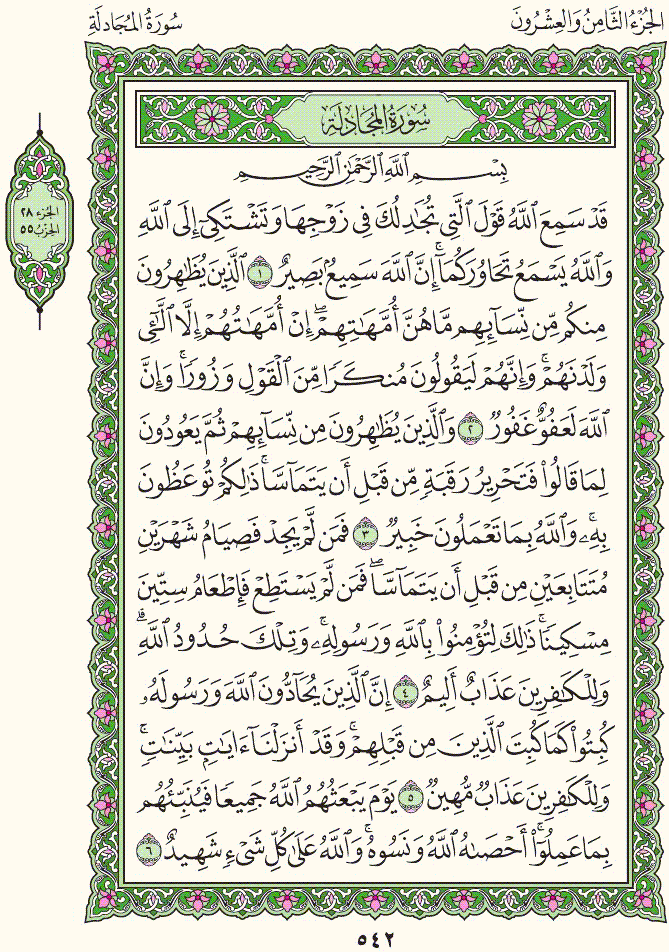 الجُزْءُ الثَّامِنُ وَالعِشْرُونَ
سُورَةُ المُجَادلَةِ
سُورَةُ المُجَادلَةِ
بِسْمِ ٱللَّهِ ٱلرَّحْمَٰنِ ٱلرَّحِيمِ
الجُزء ٢٨
الحِزبُ ٥٥
قَدْ سَمِعَ ٱللَّهُ قَوْلَ ٱلَّتِي تُجَٰدِلُكَ فِي زَوْجِهَا وَتَشْتَكِيٓ إِلَى ٱللَّهِ
وَٱللَّهُ يَسْمَعُ تَحَاوُرَكُمَآۚ إِنَّ ٱللَّهَ سَمِيعُۢ بَصِيرٌ ١ ٱلَّذِينَ يُظَٰهِرُونَ
مِنكُم مِّن نِّسَآئِهِم مَّا هُنَّ أُمَّهَٰتِهِمْۖ إِنْ أُمَّهَٰتُهُمْ إِلَّا ٱلَّٰٓـِٔي
وَلَدْنَهُمْۚ وَإِنَّهُمْ لَيَقُولُونَ مُنكَرًا مِّنَ ٱلْقَوْلِ وَزُورًاۚ وَإِنَّ
ٱللَّهَ لَعَفُوٌّ غَفُورٌ ٢ وَٱلَّذِينَ يُظَٰهِرُونَ مِن نِّسَآئِهِمْ ثُمَّ يَعُودُونَ
لِمَا قَالُواْ فَتَحْرِيرُ رَقَبَةٍ مِّن قَبْلِ أَن يَتَمَآسَّاۚ ذَٰلِكُمْ تُوعَظُونَ
بِهِۦۚ وَٱللَّهُ بِمَا تَعْمَلُونَ خَبِيرٌ ٣ فَمَن لَّمْ يَجِدْ فَصِيَامُ شَهْرَيْنِ
مُتَتَابِعَيْنِ مِن قَبْلِ أَن يَتَمَآسَّاۖ فَمَن لَّمْ يَسْتَطِعْ فَإِطْعَامُ سِتِّينَ
مِسْكِينًاۚ ذَٰلِكَ لِتُؤْمِنُواْ بِٱللَّهِ وَرَسُولِهِۦۚ وَتِلْكَ حُدُودُ ٱللَّهِۗ
وَلِلْكَٰفِرِينَ عَذَابٌ أَلِيمٌ ٤ إِنَّ ٱلَّذِينَ يُحَآدُّونَ ٱللَّهَ وَرَسُولَهُۥ
كُبِتُواْ كَمَا كُبِتَ ٱلَّذِينَ مِن قَبْلِهِمْۚ وَقَدْ أَنزَلْنَآ ءَايَٰتٍۭ بَيِّنَٰتٍۚ
وَلِلْكَٰفِرِينَ عَذَابٌ مُّهِينٌ ٥ يَوْمَ يَبْعَثُهُمُ ٱللَّهُ جَمِيعًا فَيُنَبِّئُهُم
بِمَا عَمِلُوٓاْۚ أَحْصَىٰهُ ٱللَّهُ وَنَسُوهُۚ وَٱللَّهُ عَلَىٰ كُلِّ شَيْءٍ شَهِيدٌ ٦
٥٤٢